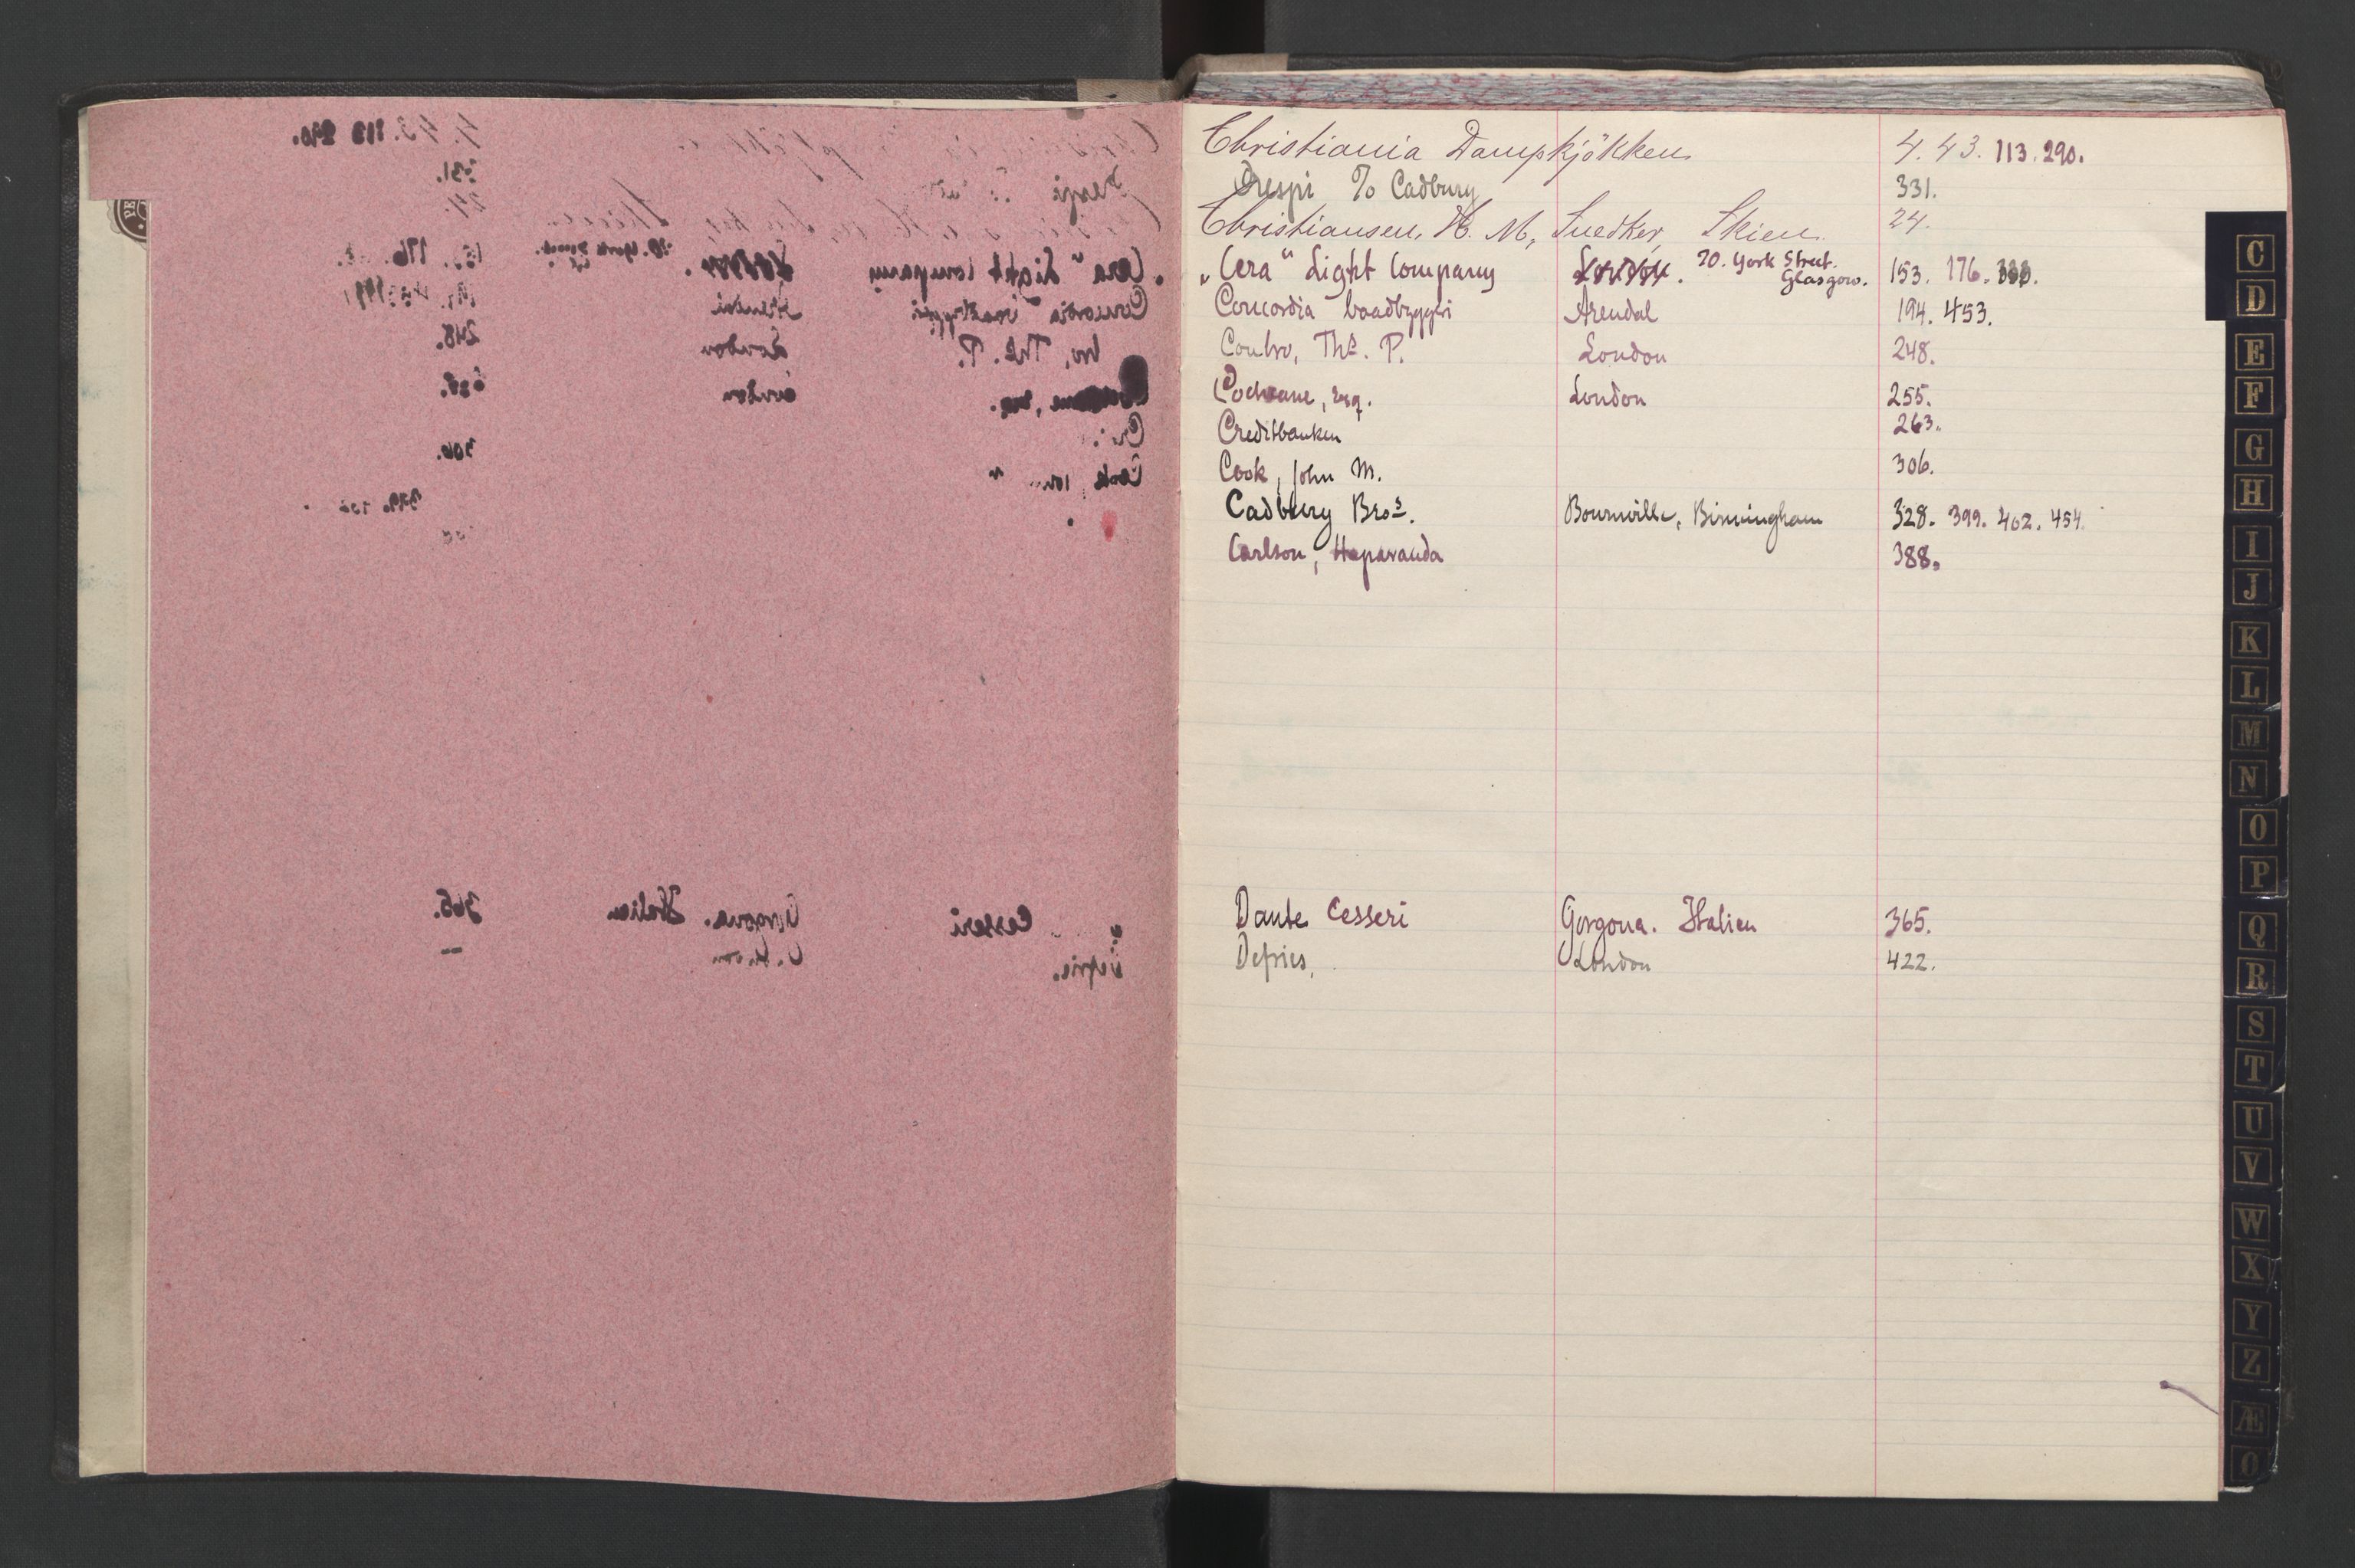 Christiania Dampkjökken 4. 43. 113. 290.
Crespi % Cadbury 331.
Christiansen, H. M, Snedker, Skien. 24.
„Cera" Light Company London. 20. York Street. Glasgow. 153. 176.
Concordia baadbyggeri Arendal 194. 453.
Coubro, Ths. P. London 248.
Cochrane, Esq. London 255.
Creditbanken 263.
Cook, John M. 306.
Cadbury Bros. Bournville, Birmingham 328. 399. 402. 454.
Carlson, Haparanda 388.
Dante Cesseri Gorgona. Italien 365.
Defries, London 422.
C
D
E
F
G
H
I
J
K
L
M
N
O
P
Q
R
S
T
U
V
W
X
Y
Z
Æ
Ø